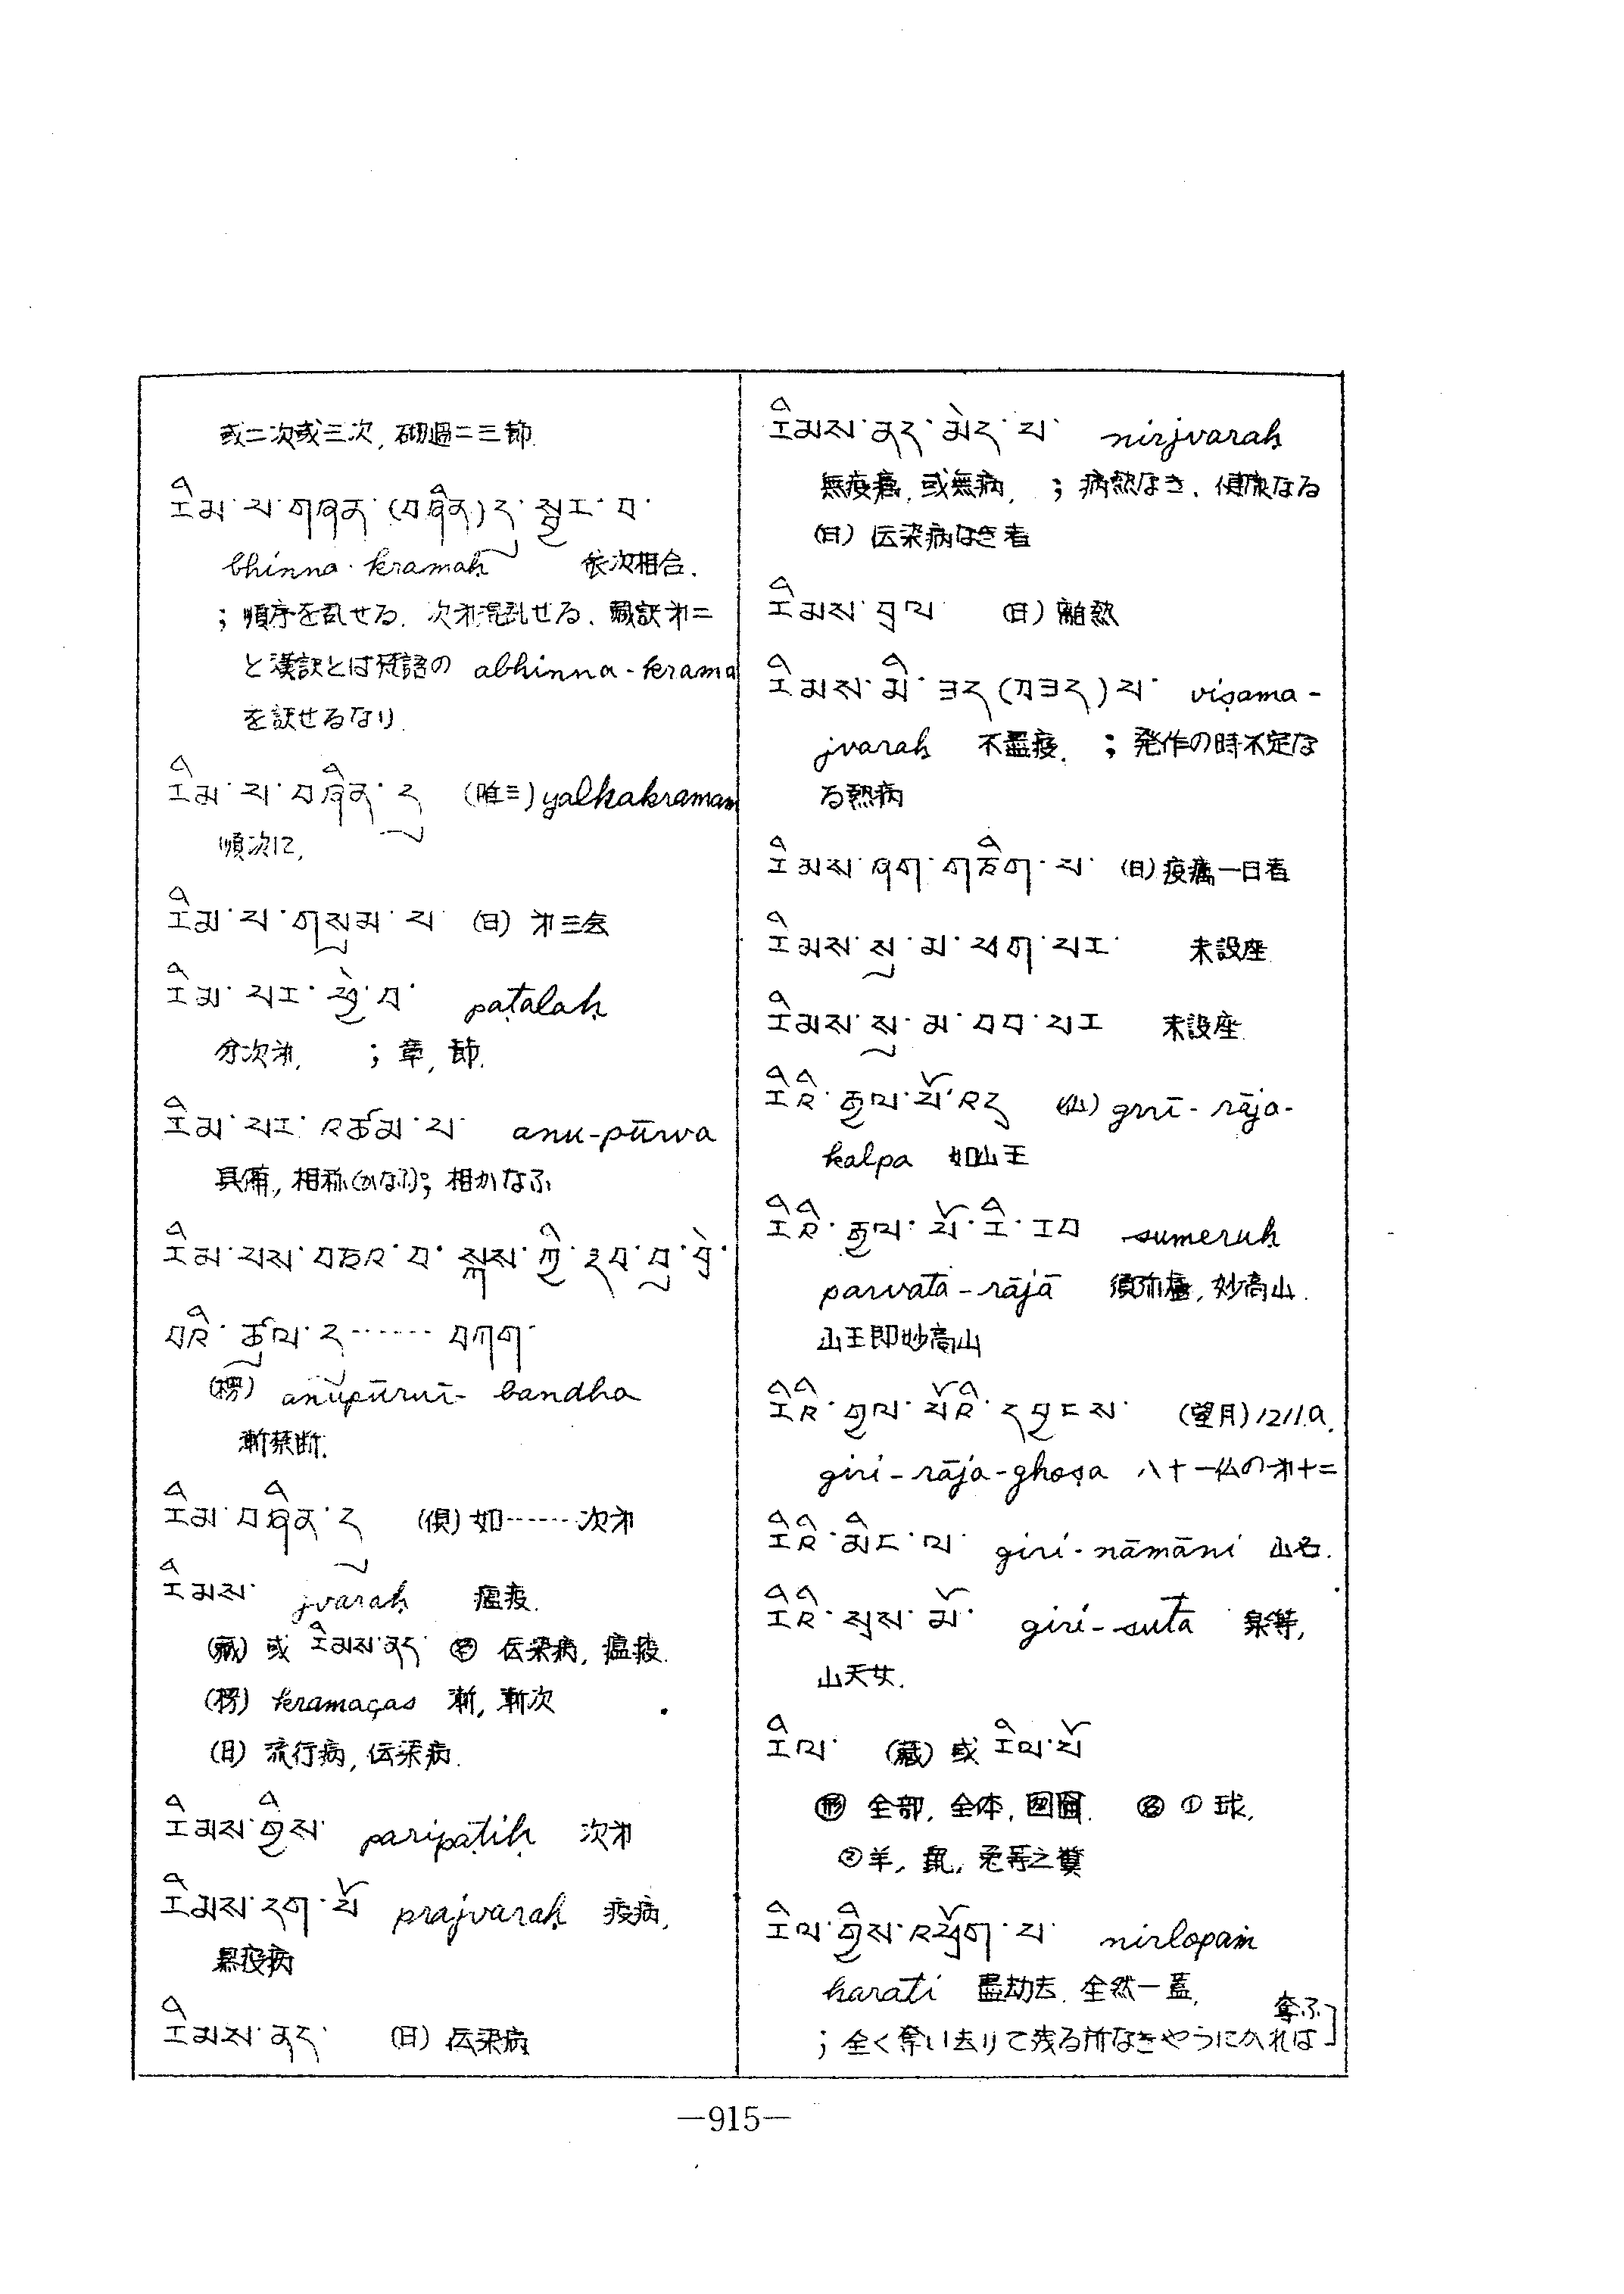 或二次或三次, 砌過二三節.
རིམ་པ་གཞན་(བཞིན)དུ་སྦྱར་བ་
bhinna-kramaḥ 依次相合.
; 順序を乱せる. 次オ混乱せる、蔵訳オ二
と漢訳とは梵語の abhinna-krama
を訳せるなり.
རིམ་པ་བཞིན་དུ (唯三) yathakramam
順次に,
རིམ་པ་གསུམ་པ (日) オ三会
རིམ་པར་ཕྱེ་བ་ paṭalaḥ
分次オ, ; 章, 節.
རིམ་པར་འཚམ་པ་ anu-pūrva
具備, 相称(かなふ); 相かなふ
རིམ་པས་བཅའ་བ་སྐས་ཀྱི་རབ་བུ་བྱེ་
བའི་ཚུལ་དུ...... བཀག་
(楞) anupūrvī- bandha
漸禁断.
རིམ་བཞིན་དུ (倶) 如......次オ
རིམས་ jvaraḥ 瘟疫.
(蔵) 或 རིམས་ནད་ 名 伝染病, 瘟疫.
(楞) kramaças 漸, 漸次
(日) 流行病, 伝染病.
རིམས་གྱིས་ paripaṭiḥ 次オ
རིམས་དག་པོ prajvaraḥ 疫病,
熱疫病
རིམས་ནད་ (日) 伝染病
རིམས་ནད་མེད་པ་ nirjvaraḥ
無疫癘, 或無病, ; 病熱なき、健康なる
(日) 伝染病なき者
རིམས་བྲལ (日) 離熱
རིམས་མི་ཟད་(བཟད)པ་ viṣama-
jvaraḥ 不瘟疫. ; 発作の時不定な
る熱病
རིམས་ཞག་གཅིག་པ་ (日) 疫癘一日者
རིམས་སུ་མ་ཕག་པར་ 未設座
རིམས་སུ་མ་བབ་པར 未設座.
རིའི་རྒྱལ་པོ་འདྲ (仙) girī-rāja-
kalpa 如山王
རིའི་རྒྱལ་པོ་རི་རབ sumeruḥ
parvatā-rājā 須弥廬, 妙高山.
山王即妙高山
རིའི་རྒྱལ་པོའི་དབྱངས་ (望月) 1211.a.
giri-rāja-ghoṣa 八十一仏のオ十二
རིའི་མིང་ལ་ giri-nāmāni 山名.
རིའི་སྲས་མོ་ giri-sutā 泉等,
山天女.
རིལ་ (蔵) 或 རིལ་པོ
形 全部, 全体, 囫圇. 名 ① 球,
② 羊, 鼠, 兎等之糞
རིལ་གྱིས་འཕྲོག་པ་ nirlopaṁ
harati 盡劫去. 全然一蓋,
; 全く奪い去りて残る所なきやうにかれば 奪ふ]
—915—